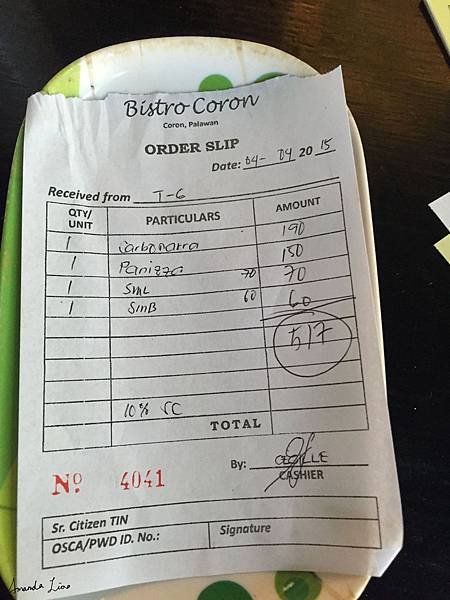 Bistro Coron
Coron, Palawan
ORDER SLIP
Date: 04-04 2015
Received from T-6
QTY/ UNIT PARTICULARS AMOUNT
1 Carbonarra 190
1 Panizza 150
1 SML 70 70
1 SMB 60 60
517
10% SC
TOTAL
By: CECILLE
CASHIER
Nº 4041
Sr. Citizen TIN
OSCA/PWD ID. No.: Signature
Amanda Liao